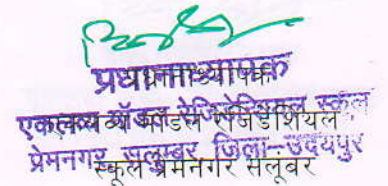 प्रधानाध्यापक
प्रधानाध्यापक
एकलव्य मॉडल रेजिडेन्शियल स्कूल
एकलव्य मॉडल रेजिडेंशियल
प्रेमनगर सलुम्बर जिला-उदयपुर
स्कूल प्रेमनगर सलूंबर